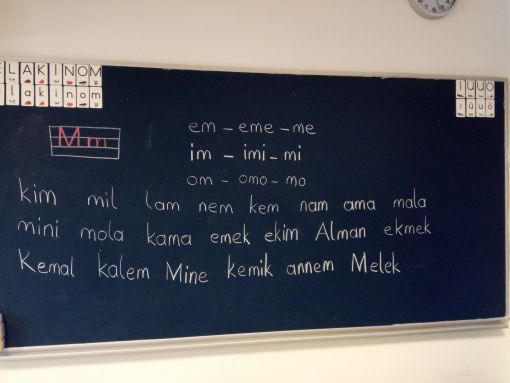 E L A K İ N O M
e l a k i n o m
I U Ü Ö
ı u ü ö
Mm
em – eme – me
im – imi – mi
om – omo – mo
kim mil lam nem kem nam ama mala
mini mola kama emek ekim Alman ekmek
Kemal kalem Mine kemik annem Melek